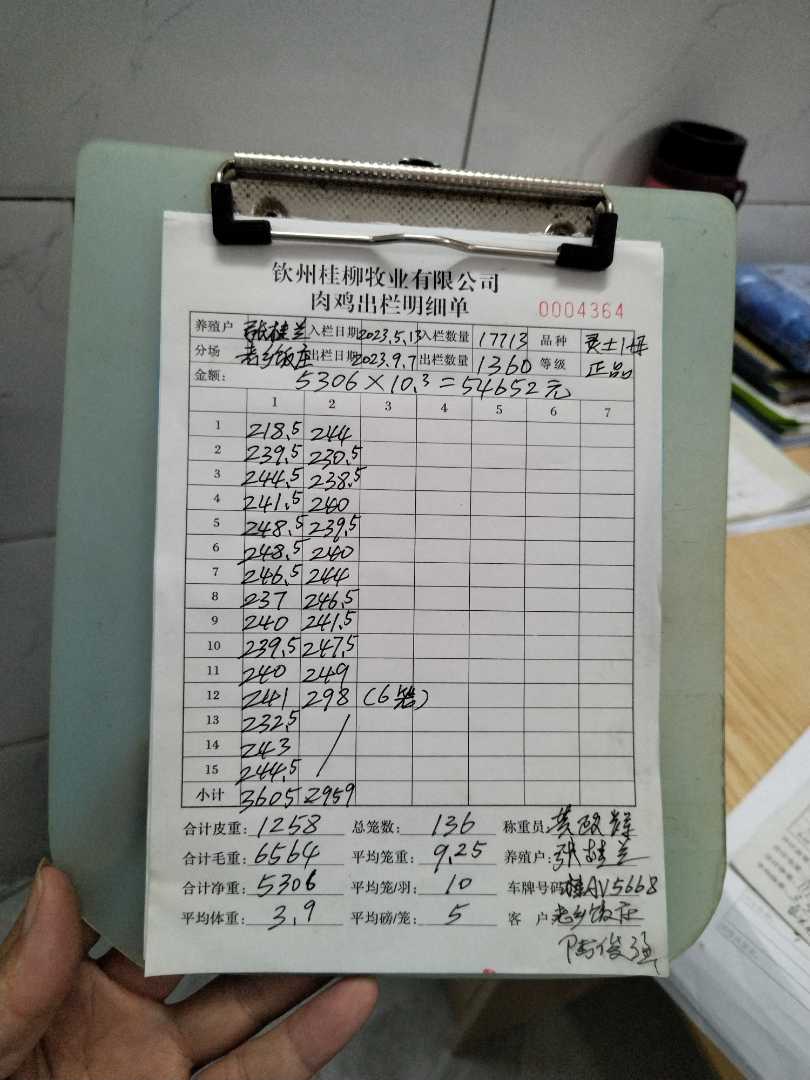 钦州桂柳牧业有限公司
肉鸡出栏明细单
0004364
养殖户 张桂兰 入栏日期 2023.5.13 入栏数量 17713 品种 灵土1号
分场 老乡饭庄 出栏日期 2023.9.7 出栏数量 1360 等级 正品
金额: 5306×10.3=54652元
1 2 3 4 5 6 7
1 218.5 244
2 239.5 230.5
3 244.5 238.5
4 241.5 240
5 248.5 239.5
6 248.5 240
7 246.5 244
8 237 246.5
9 240 241.5
10 239.5 247.5
11 240 249
12 241 298 (6笼)
13 232.5
14 243
15 244.5
小计 3605 2959
合计皮重: 1258 总笼数: 136 称重员:
合计毛重: 6564 平均笼重: 9.25 养殖户: 张桂兰
合计净重: 5306 平均笼/羽: 10 车牌号码 桂AV5668
平均体重: 3.9 平均磅/笼: 5 客 户 老乡饭庄